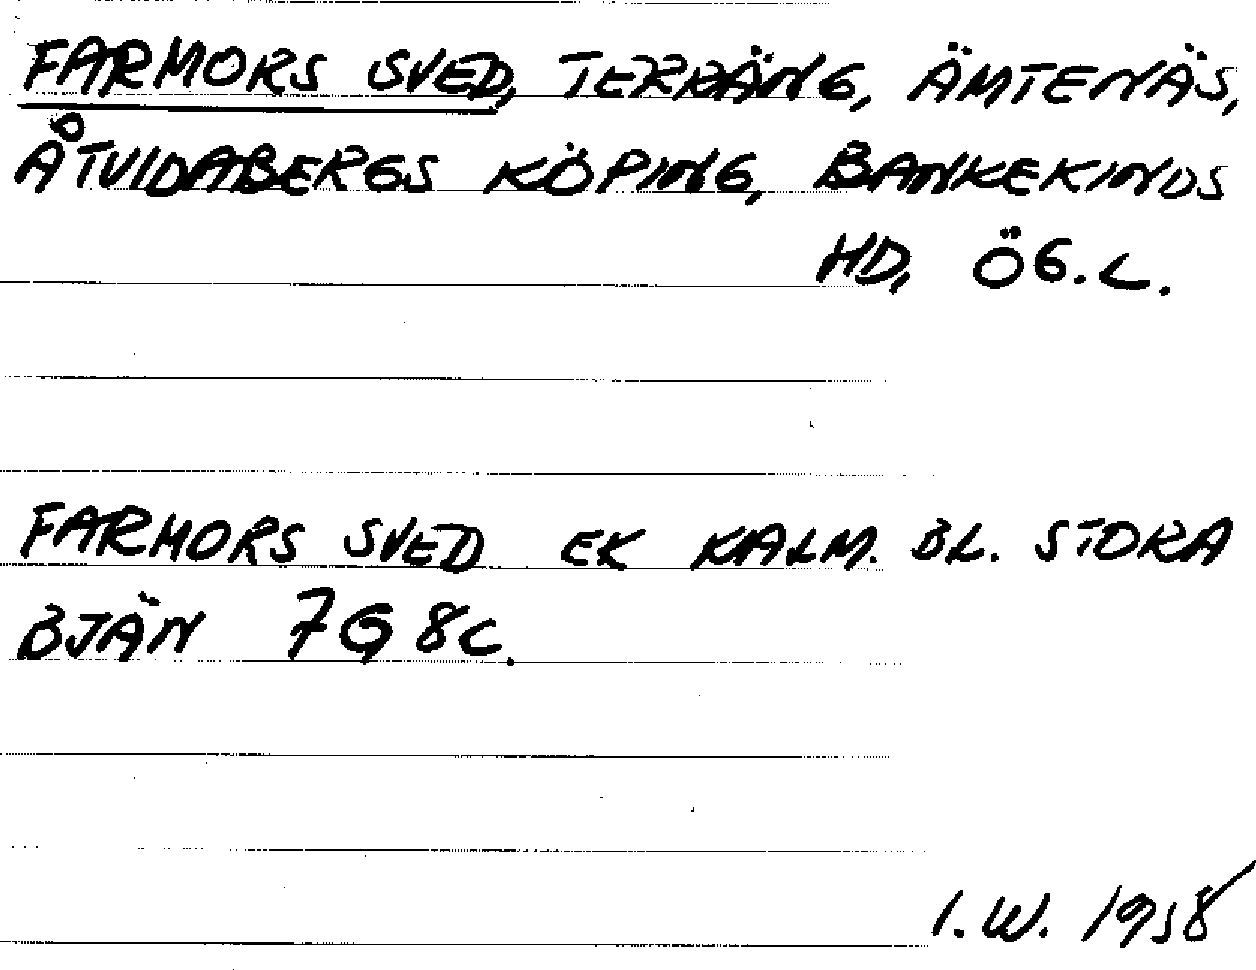 FARMORS SVED, TERRÄNG, ÄMTENÄS,
ÅTVIDABERGS KÖPING, BANKEKINDS
HD, ÖG. L.
FARMORS SVED EK KALM. BL. STORA
BJÄN 7G 8c.
I. W. 1958